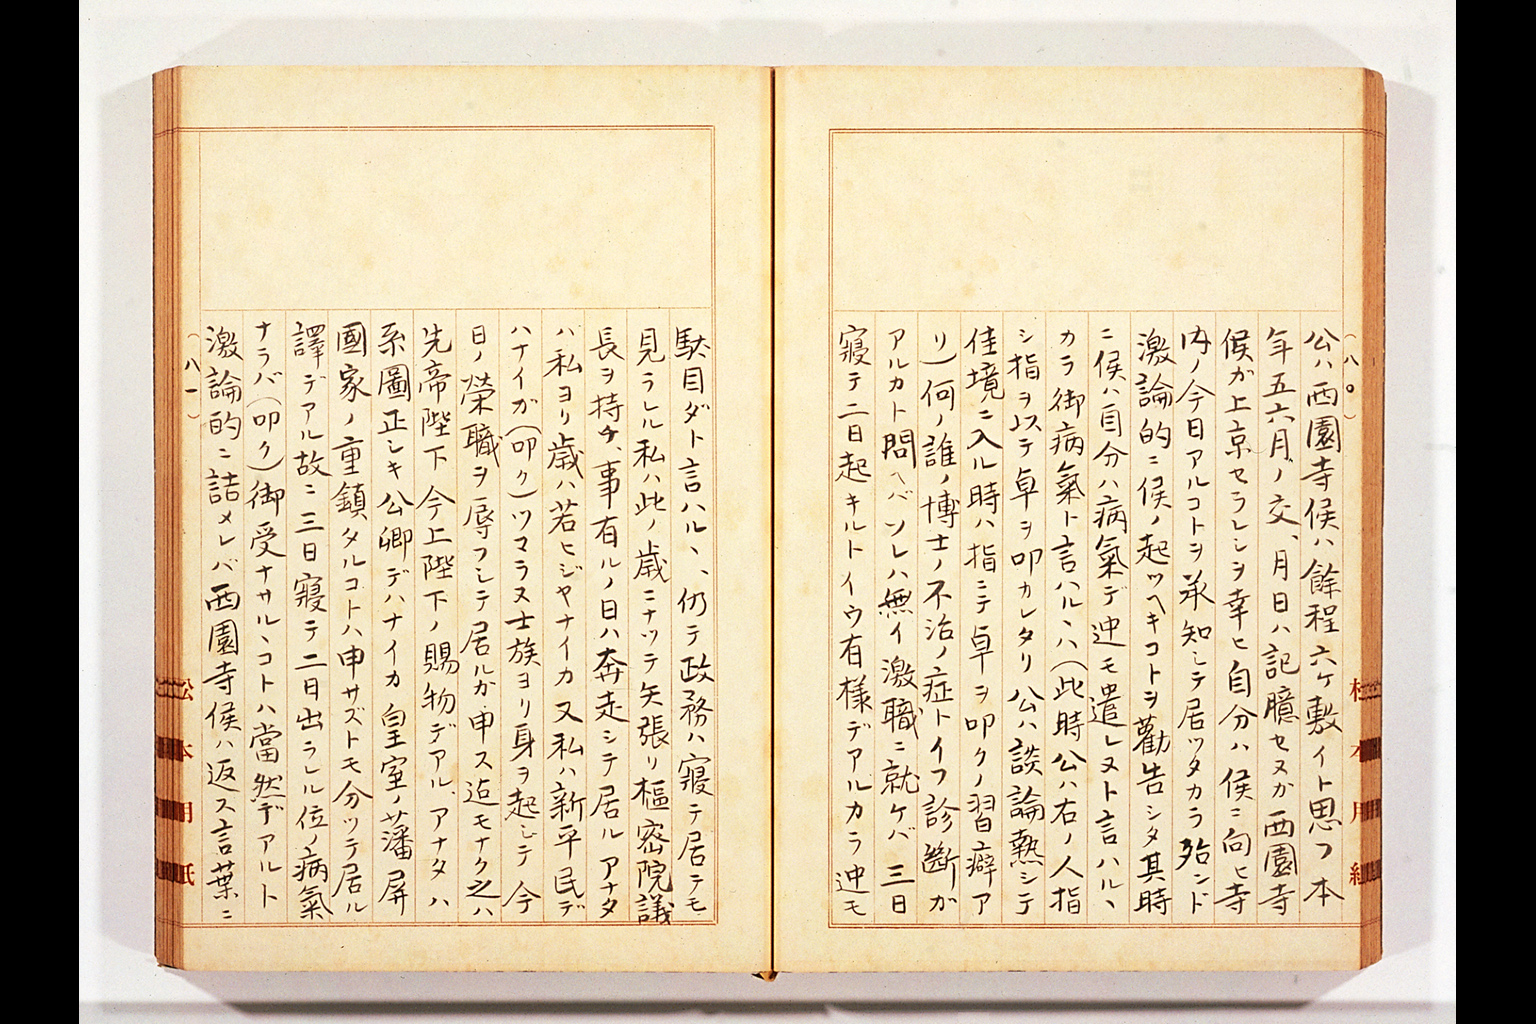 (八〇)
公ハ西園寺侯ハ餘程六ケ敷イト思フ本
年五六月ノ交、月日ハ記臆セヌカ西園寺
侯ガ上京セラレシヲ幸ヒ自分ハ侯ニ向ヒ寺
内ノ今日アルコトヲ承知シテ居ツタカラ殆ンド
激論的ニ侯ノ起ツヘキコトヲ勸告シタ其時
ニ侯ハ自分ハ病氣デ迚モ遣レヌト言ハル、
カラ御病氣ト言ハル、ハ(此時公ハ右ノ人指
シ指ヲ以テ卓ヲ叩カレタリ公ハ談論熱シテ
佳境ニ入ル時ハ指ニテ卓ヲ叩クノ習癖ア
リ)何ノ誰ノ博士ノ不治ノ症トイフ診斷ガ
アルカト問ヘバソレハ無イ激職ニ就ケバ三日
寢テ二日起キルトイウ有樣デアルカラ迚モ
駄目ダト言ハル、、仍テ政務ハ寢テ居テモ
見ラレル私ハ此ノ歳ニナツテ矢張リ樞密院議
長ヲ持チ、事有ルノ日ハ奔走シテ居ルアナタ
ハ私ヨリ歳ハ若ヒジヤナイカ又私ハ新平民デ
ハナイガ(叩ク)ツマラヌ士族ヨリ身ヲ起シテ今
日ノ榮職ヲ辱フシテ居ルガ申ス迄モナク之ハ
先帝陛下今上陛下ノ賜物デアル、アナタハ
系圖正シキ公卿デハナイカ皇室ノ藩屏
國家ノ重鎮タルコトハ申サズトモ分ツテ居ル
譯デアル故ニ三日寢テ二日出ラレル位ノ病氣
ナラバ(叩ク)御受ナサル、コトハ當然デアルト
激論的ニ詰メレバ西園寺侯ハ返ス言葉ニ
(八一)
松本用紙